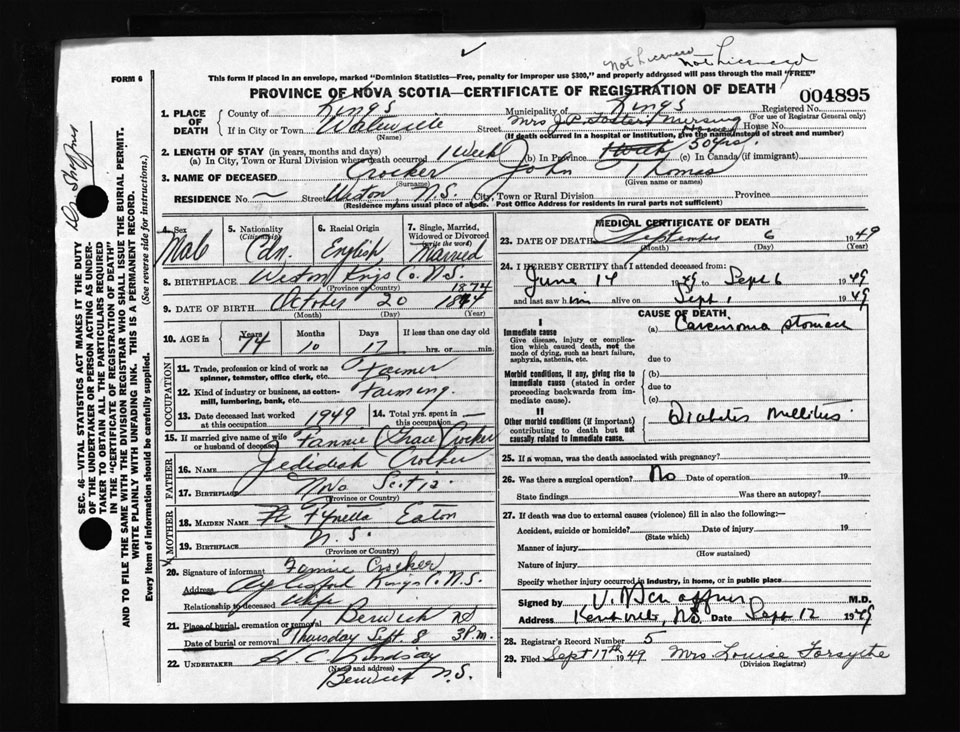 Not Licensed
Not Licensed
FORM 6
This form if placed in an envelope, marked "Dominion Statistics—Free, penalty for improper use $300," and properly addressed will pass through the mail "FREE"
PROVINCE OF NOVA SCOTIA—CERTIFICATE OF REGISTRATION OF DEATH
004895
1. PLACE OF DEATH
County of Kings
Municipality of Kings
Registered No.
(For use of Registrar General only)
If in City or Town Wolfville
(Name)
Street Mrs J. R. Fosters Nursing Home House No.
(If death occurred in a hospital or institution, give the name instead of street and number)
2. LENGTH OF STAY (in years, months and days)
(a) In City, Town or Rural Division where death occurred 1 Week (b) In Province 50 yrs. (c) In Canada (if immigrant)
3. NAME OF DECEASED Crocker John Thomas
(Surname) (Given name or names)
RESIDENCE No. — Street Weston N.S. City, Town or Rural Division Province
(Residence means usual place of abode. Post Office Address for residents in rural parts not sufficient)
4. Sex Male
5. Nationality (Citizenship) Cdn.
6. Racial Origin English
7. Single, Married, Widowed or Divorced (write the word) Married
8. BIRTHPLACE Weston Kings Co. N.S.
(Province or Country)
1874
9. DATE OF BIRTH October 20
(Month) (Day) (Year)
10. AGE in Years 74 Months 10 Days 17 If less than one day old hrs. or min.
OCCUPATION
11. Trade, profession or kind of work as spinner, teamster, office clerk, etc. Farmer
12. Kind of industry or business, as cotton-mill, lumbering, bank, etc. Farming
13. Date deceased last worked at this occupation 1949
14. Total yrs. spent in this occupation —
15. If married give name of wife or husband of deceased Fannie (Grace) Crocker
FATHER
16. NAME Jedidiah Crocker
17. BIRTHPLACE Nova Scotia
(Province or Country)
MOTHER
18. MAIDEN NAME Eaton
19. BIRTHPLACE N.S.
(Province or Country)
20. Signature of informant Fannie Crocker
Address Aylesford Kings Co. N.S.
Relationship to deceased Wife
21. Place of burial, cremation or removal Berwick NS
Date of burial or removal Thursday Sept. 8 3 P.m.
22. UNDERTAKER H. C. Lindsay
(Name and address)
Berwick N.S.
MEDICAL CERTIFICATE OF DEATH
23. DATE OF DEATH September 6 1949
(Month) (Day) (Year)
24. I HEREBY CERTIFY that I attended deceased from:
June 14 1949 to Sept 6 1949
and last saw him alive on Sept 1 1949
CAUSE OF DEATH
I
Immediate cause
Give disease, injury or complication which caused death, not the mode of dying, such as heart failure, asphyxia, asthenia, etc.
(a) Carcinoma stomach
due to
Morbid conditions, if any, giving rise to immediate cause (stated in order proceeding backwards from immediate cause).
(b)
due to
(c)
II
Other morbid conditions (if important) contributing to death but not causally related to immediate cause.
Diabetes Mellitus
25. If a woman, was the death associated with pregnancy?
26. Was there a surgical operation? No Date of operation 19
State findings Was there an autopsy?
27. If death was due to external causes (violence) fill in also the following:—
Accident, suicide or homicide? Date of injury 19
(State which)
Manner of injury
(How sustained)
Nature of injury
Specify whether injury occurred in industry, in home, or in public place
Signed by V. D. Schaffner M.D.
Address Kentville, NS Date Sept 12 1949
28. Registrar's Record Number 5
29. Filed Sept 17th 1949 Mrs Louise Forsythe
(Division Registrar)
Dr. Shaffner
SEC. 46—VITAL STATISTICS ACT MAKES IT THE DUTY
OF THE UNDERTAKER OR PERSON ACTING AS UNDERTAKER TO OBTAIN ALL THE PARTICULARS REQUIRED
IN THE "CERTIFICATE OF REGISTRATION OF DEATH"
AND TO FILE THE SAME WITH THE DIVISION REGISTRAR WHO SHALL ISSUE THE BURIAL PERMIT.
WRITE PLAINLY WITH UNFADING INK. THIS IS A PERMANENT RECORD.
Every item of information should be carefully supplied. (See reverse side for instructions.)